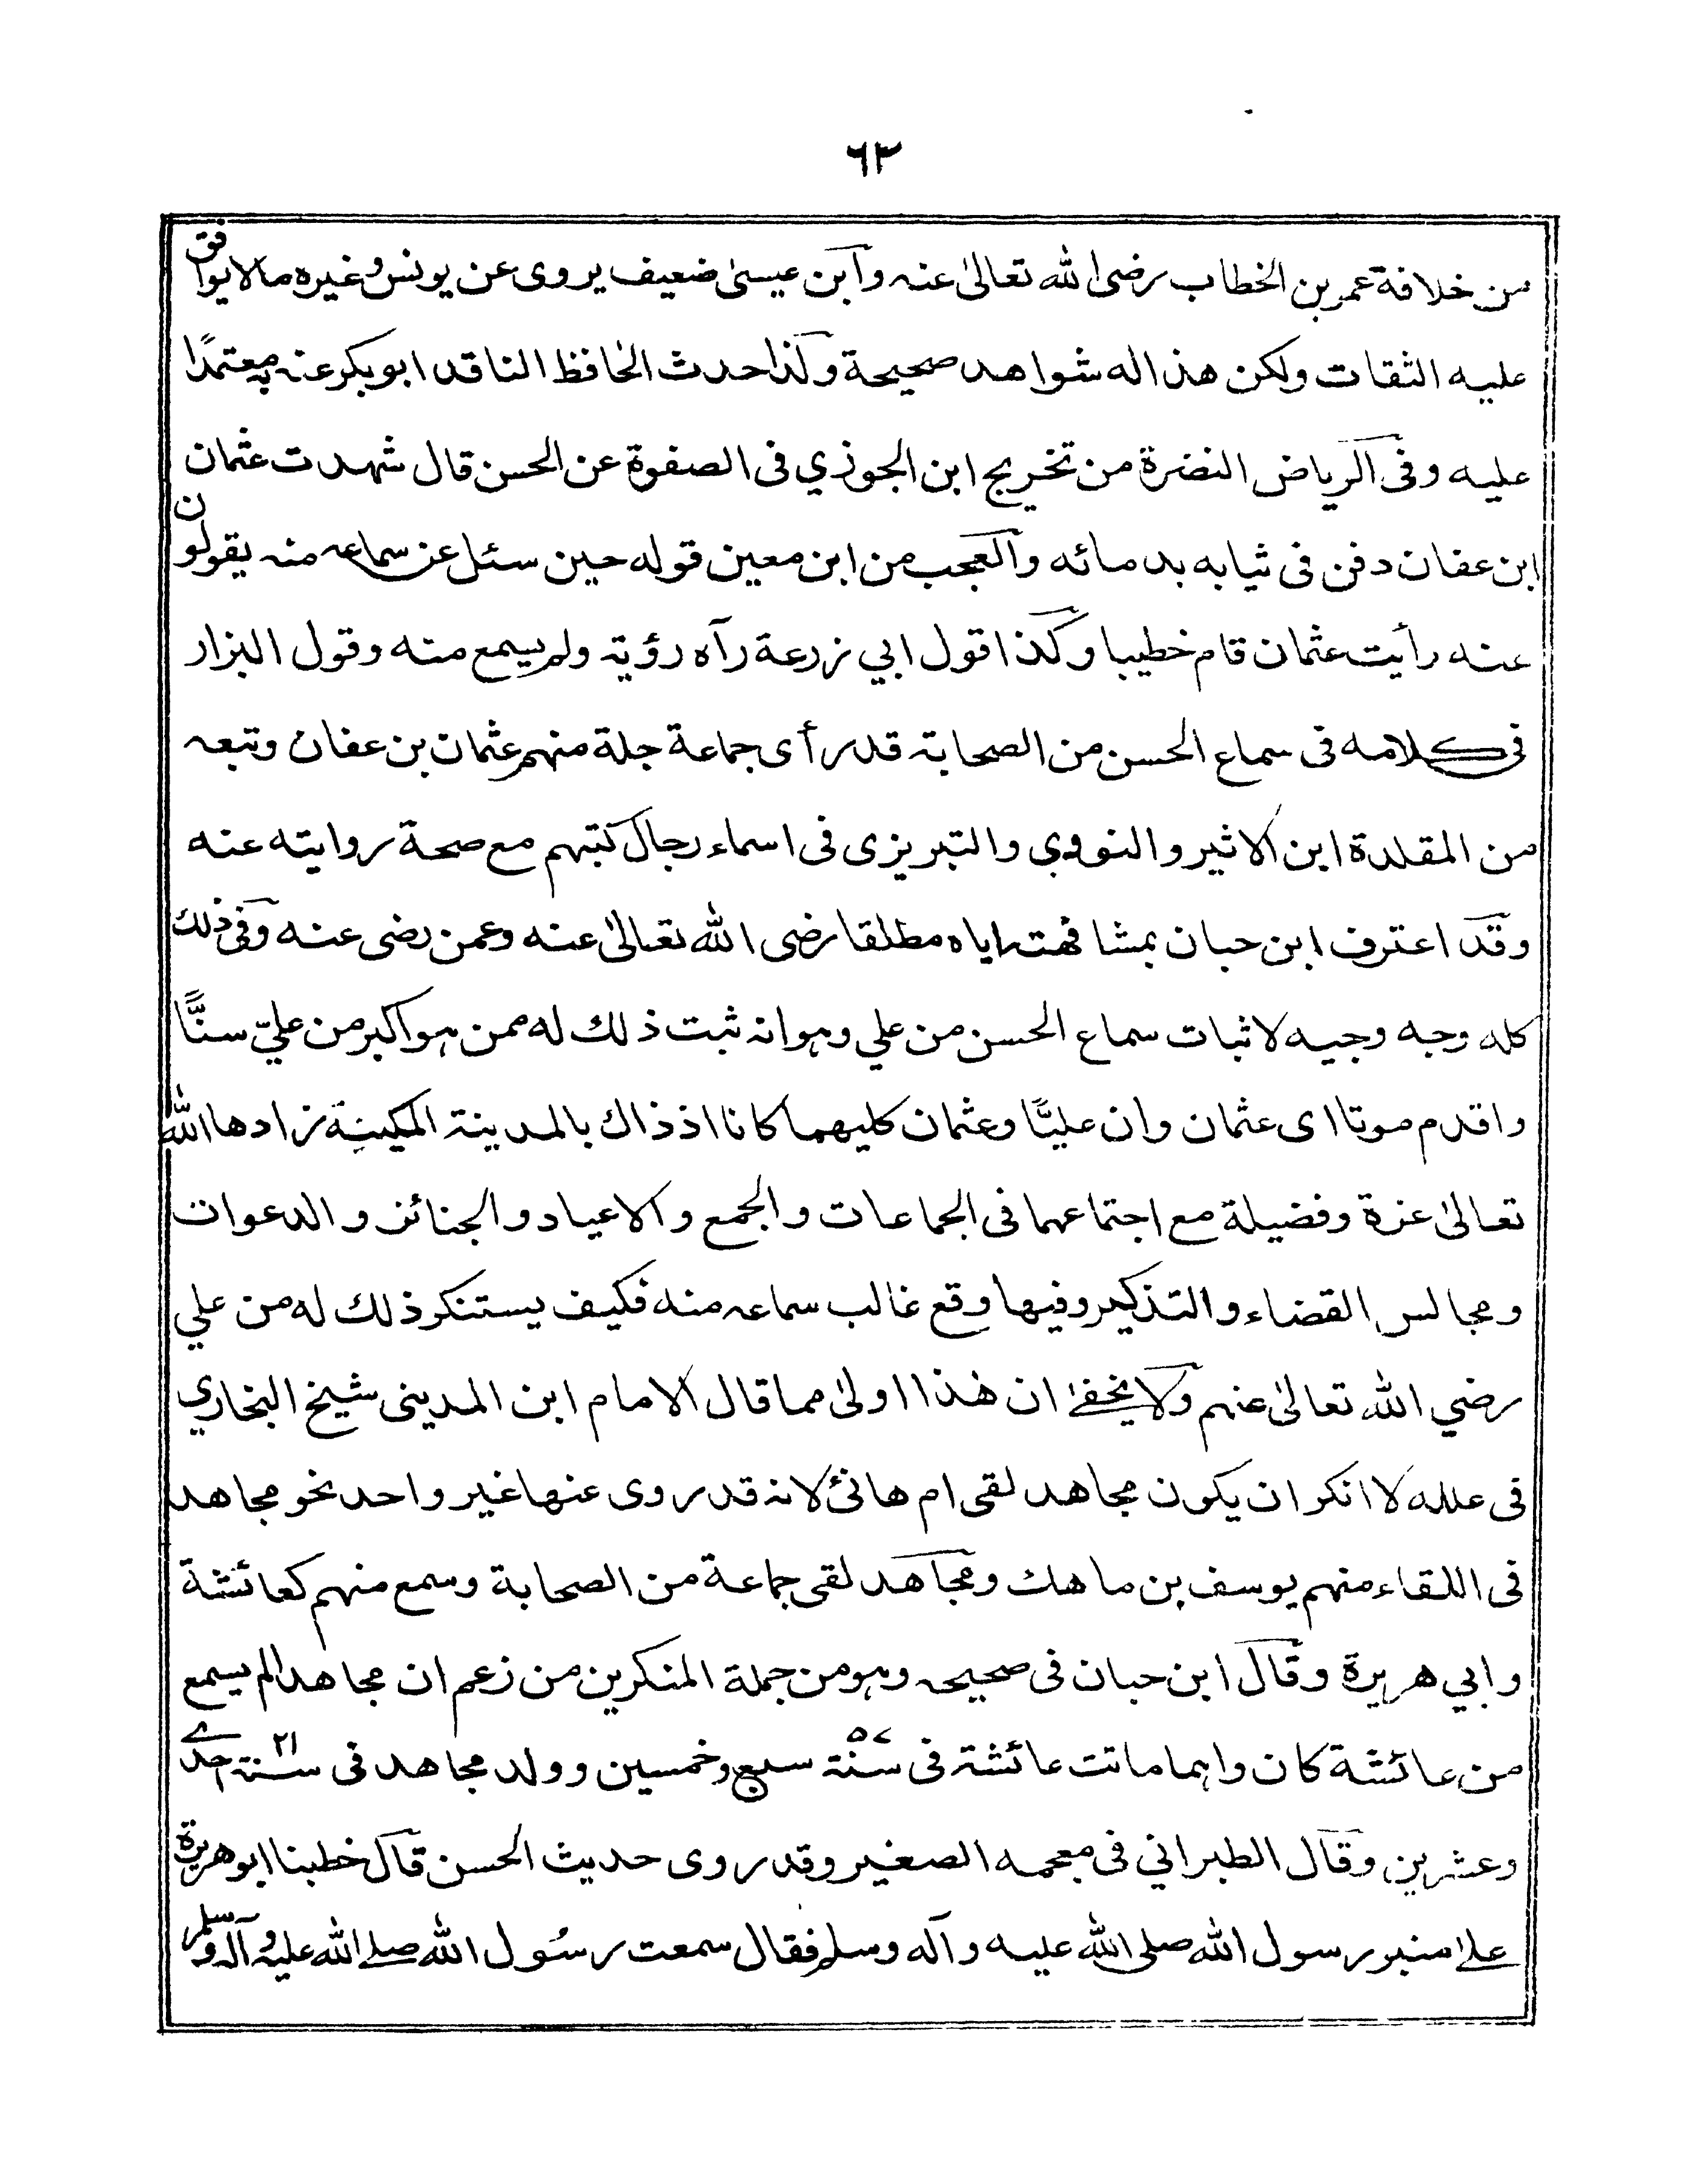 ٦٣
من خلافة عمر بن الخطاب رضى الله تعالىٰ عنه وابن عيسىٰ ضعيف يروى عن يونس وغيره مالا يوافق
عليه الثقات ولكن هذا له شواهد صحيحة ولذا حدث الحافظ الناقد ابو بكر عنه به معتمدًا
عليه وفى الرياض النضرة من تخريج ابن الجوزي فى الصفوة عن الحسن قال شهدت عثمان
ابن عفان دفن فى ثيابه بدمائه والعجب من ابن معين قوله حين سئل عن سماعه منه يقولون
عنه رأيت عثمان قام خطيبا وكذا قول ابي زرعة رآه رؤية ولم يسمع منه وقول البزار
فى كلامه فى سماع الحسن من الصحابة قد رأى جماعة جلة منهم عثمان بن عفان وتبعه
من المقلدة ابن الاثير والنووي والتبريزى فى اسماء رجال كتبهم مع صحة روايته عنه
وقد اعترف ابن حبان بمشافهته اياه مطلقا رضى الله تعالىٰ عنه وعمن رضى عنه وفى ذلك
كله وجه وجيه لاثبات سماع الحسن من علي وهو انه ثبت ذلك له ممن هو اكبر من عليّ سنًّا
واقدم موتا اى عثمان وان عليًّا وعثمان كليهما كانا اذ ذاك بالمدينة المكينة زادها الله
تعالىٰ عزة وفضيلة مع اجتماعهما فى الجماعات والجمع والاعياد والجنائز والدعوات
ومجالس القضاء والتذكير وفيها وقع غالب سماعه منه فكيف يستنكر ذلك له من علي
رضي الله تعالىٰ عنهم ولا يخفىٰ ان هٰذا اولىٰ مما قال الامام ابن المدينى شيخ البخاري
فى علله لا انكر ان يكون مجاهد لقى ام هانئ لانه قد روى عنها غير واحد نحو مجاهد
فى اللقاء منهم يوسف بن ماهك ومجاهد لقى جماعة من الصحابة وسمع منهم كعائشة
وابي هريرة وقال ابن حبان فى صحيحه وهو من جملة المنكرين من زعم ان مجاهدا لم يسمع
من عائشة كان واهما ماتت عائشة فى سنة ٥٧ سبع وخمسين وولد مجاهد فى سنة ٢١ احدے
وعشرين وقال الطبراني فى معجمه الصغير وقد روى حديث الحسن قال خطبنا ابو هريرة
علے منبر رسول الله صلى الله عليه وآله وسلم فقال سمعت رسُول الله صلے الله عليه وآله وسلم